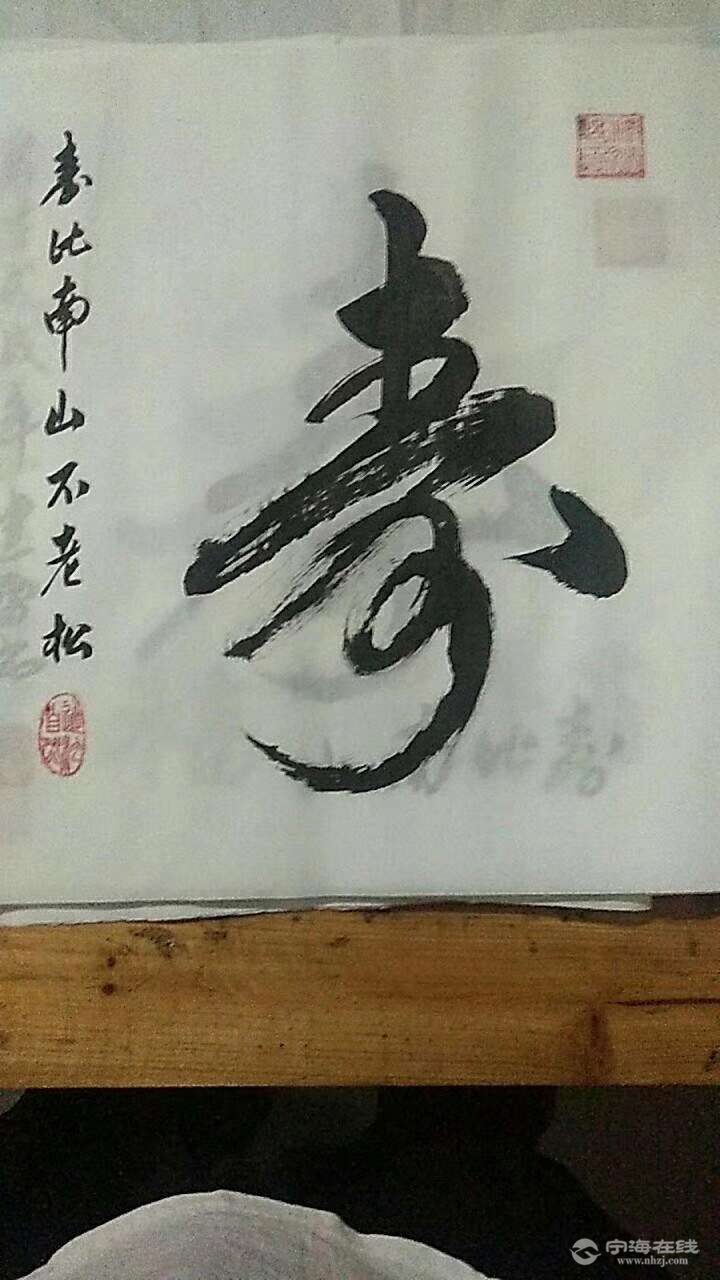 寿
寿比南山不老松
宁海在线
www.nhzj.com